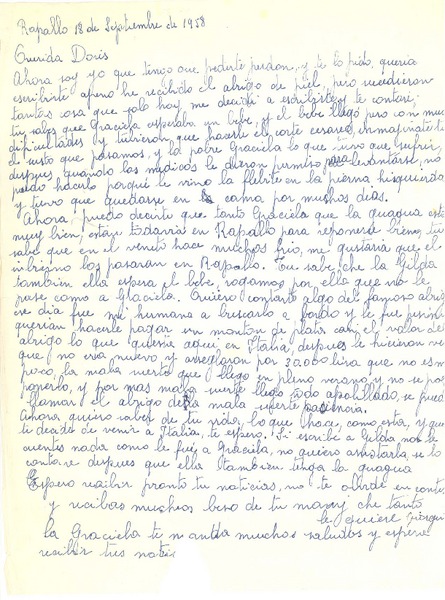 Rapallo 18 de Septiembre de 1958
Querida Doris
Ahora soy yo que tengo que pedirte perdon, y te lo pido, queria
escribirte apena he recibido el abrigo de piel, pero sucedieron
tantas cosa que solo hoy me decidi a escribirte y te contaré;
tu sabes que Graciela esperaba un bebe, y el bebe llegó pero con muchas
dificultades y tuvieron que hacerle el corte cesareo, imaginate
el susto que pasamos, y la pobre Graciela lo que tuvo que sufrir,
despues quando los medicos le dieron permiso para levantarse, no
pudo hacerlo porqué le vino la flebite en la pierna hisquierda
y tuvo que quedarse en la cama por muchos dias.
Ahora puedo decirte que tanto Graciela que la guagua está
muy bien, están todavia en Rapallo para reponerse bien, tu
sabe que en el veneto hace muchos frio, me gustaria que el
inbierno los pasaran en Rapallo. Tu sabe che la Gilda
tambien ella espera el bebe, rogamos por ella que no le
pase como a Graciela. Quiero contarte algo del famoso abrigo
ese dia fue mi humana a buscarlo a bordo y le fue
querian hacerle pagar un monton de plata casi el valor del
abrigo lo que questa aqui en Italia, despues le hicieron ver
que no era nuevo y arreglaron por 30.000 lira que no es
poco, la mala suerte que llegó en pleno verano y no se pol
ponerlo, y por mas mala suerte llegó todo apolillado, se puede
llamar el abrigo de la mala suerte paciencia.
Ahora quiero saber de tu vida, lo que hace, como esta, y que
te decide de venir a Italia, te espero. Si escribe a Gilda no le
cuentes nada como le fue a Graciela, no quiero asustarla, se lo
contare despues que ella tambien tenga la guagua
Espero recibir pronto tu noticias, no te olvide en
y recibas muchos beso de tu mamy che tanto
te quiere Giorgia
la Graciela te manda muchos saludos y espera
recibir tus notic